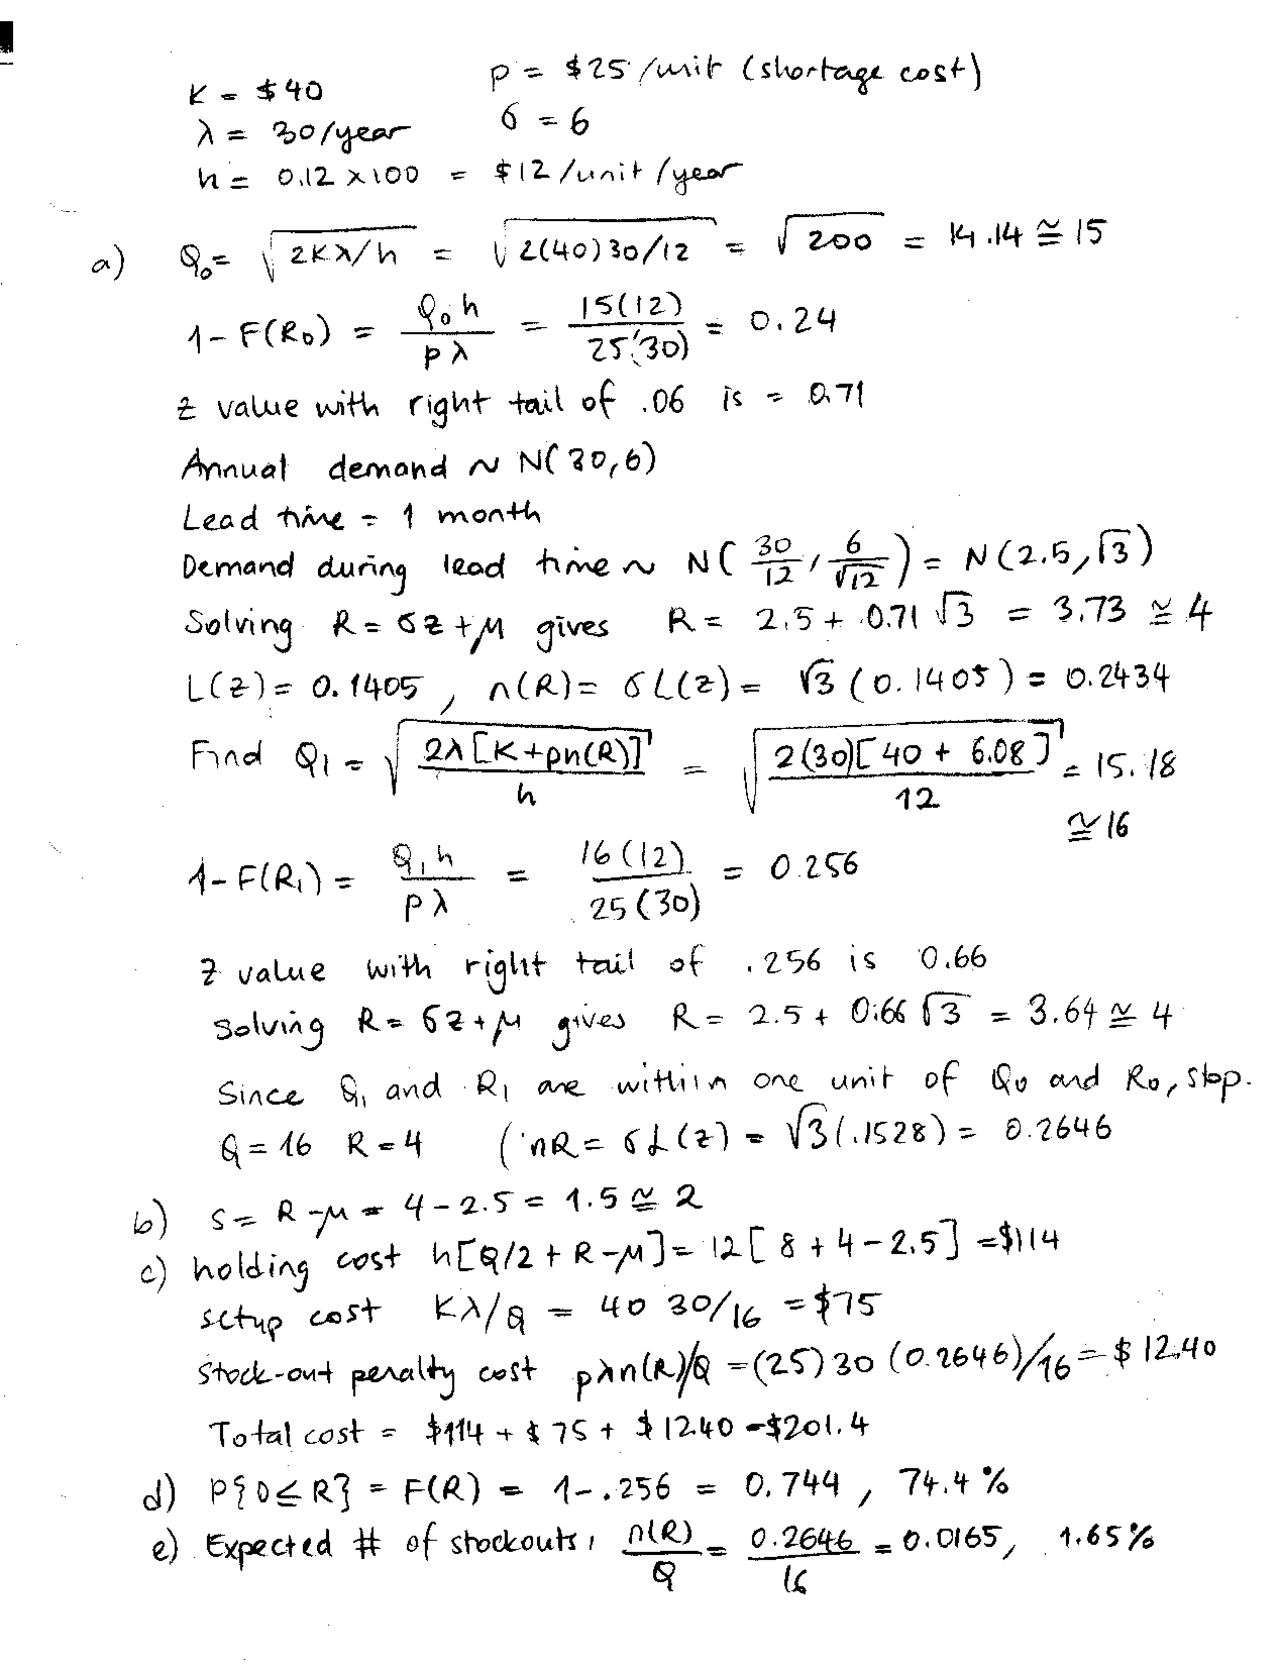 K = $40    p = $25/unit (shortage cost)
λ = 30/year    σ = 6
h = 0.12 x100 = $12/unit/year
a) Q₀ = √(2Kλ/h) = √(2(40)30/12) = √200 = 14.14 ≅ 15
1-F(R₀) = Q₀h/pλ = 15(12)/25(30) = 0.24
z value with right tail of .06 is = 0.71
Annual demand ~ N(30,6)
Lead time = 1 month
Demand during lead time ~ N(30/12, 6/√12) = N(2.5,√3)
Solving R = σz+μ gives R = 2.5 + 0.71 √3 = 3.73 ≅ 4
L(z) = 0.1405, n(R) = σL(z) = √3 (0.1405) = 0.2434
Find Q₁ = √(2λ[K+pn(R)]/h) = √(2(30)[40 + 6.08]/12) = 15.18
≅ 16
1-F(R₁) = Q₁h/pλ = 16(12)/25(30) = 0.256
z value with right tail of .256 is 0.66
Solving R = σz+μ gives R = 2.5 + 0.66 √3 = 3.64 ≅ 4
Since Q₁ and R₁ are within one unit of Q₀ and R₀, stop.
Q = 16 R = 4 (nR = σL(z) = √3(.1528) = 0.2646
b) s = R-μ = 4-2.5 = 1.5 ≅ 2
c) holding cost h[Q/2 + R-μ] = 12[8+4-2.5] = $114
setup cost Kλ/Q = 40 30/16 = $75
Stock-out penalty cost pλn(R)/Q = (25)30(0.2646)/16 = $12.40
Total cost = $114 + $75 + $12.40 = $201.4
d) P{D≤R} = F(R) = 1-.256 = 0.744, 74.4%
e) Expected # of stockouts, n(R)/Q = 0.2646/16 = 0.0165, 1.65%